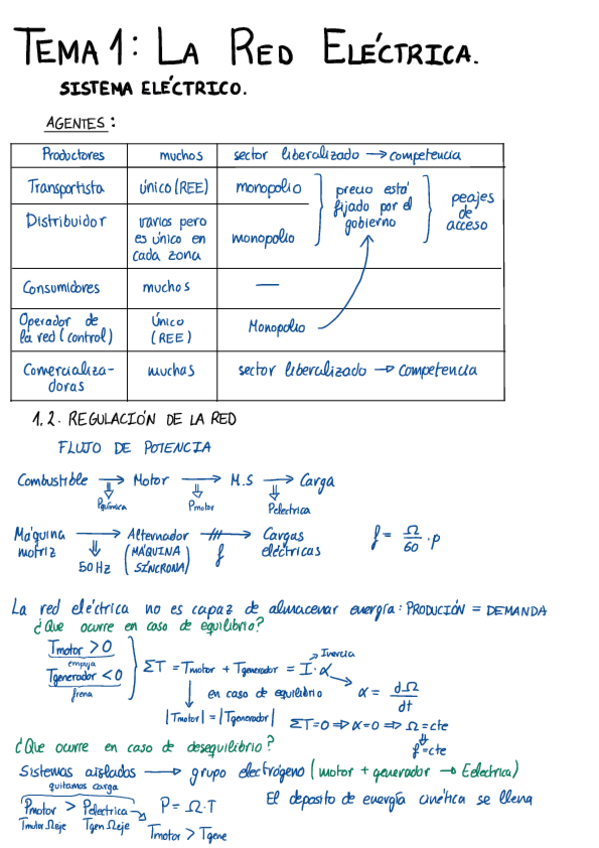 TEMA 1: LA RED ELÉCTRICA.
SISTEMA ELÉCTRICO.
AGENTES:
Productores muchos sector liberalizado → competencia
Transportista único (REE) monopolio precio está fijado por el gobierno peajes de acceso
Distribuidor varios pero es único en cada zona monopolio
Consumidores muchos —
Operador de la red (control) Único (REE) Monopolio
Comercializa-doras muchas sector liberalizado → competencia
1.2. REGULACIÓN DE LA RED
FLUJO DE POTENCIA
Combustible → Motor → M.S → Carga
Pquímica Pmotor Pelectrica
Máquina motriz → Alternador (MÁQUINA SÍNCRONA) → Cargas eléctricas f = Ω/60 · p
50 Hz f
La red eléctrica no es capaz de almacenar energía: PRODUCIÓN = DEMANDA
¿Que ocurre en caso de equilibrio?
Tmotor > 0
empuja
Tgenerador < 0
frena
ΣT = Tmotor + Tgenerador = I · α
Inercia
α = dΩ/dt
en caso de equilibrio
|Tmotor| = |Tgenerador| ΣT=0 ⇒ α=0 ⇒ Ω=cte
f=cte
¿Que ocurre en caso de desequilibrio?
Sistemas aislados → grupo electrógeno (motor + generador → Eelectrica)
quitamos carga
Pmotor > Pelectrica → P = Ω·T El deposito de energía cinética se llena
Tmotor Ωeje Tgen Ωeje Tmotor > Tgene